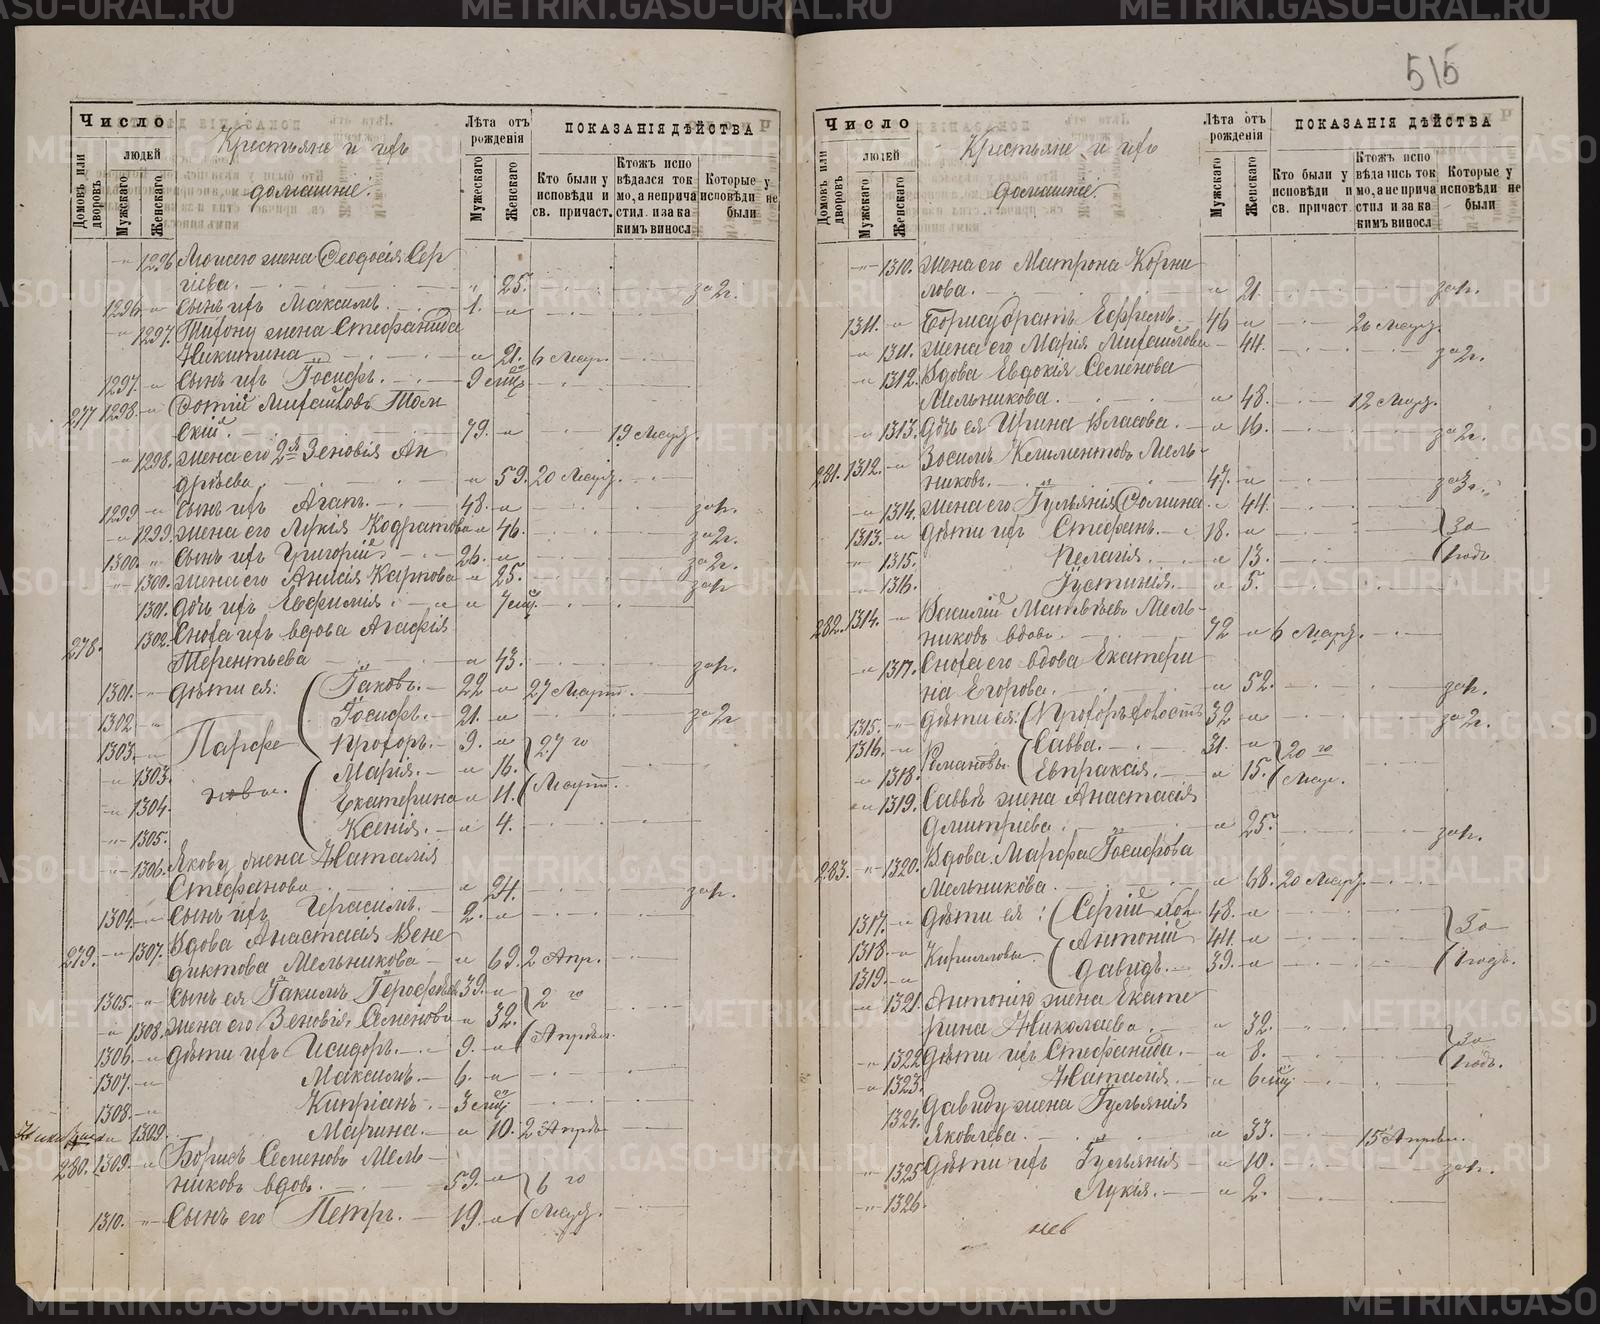 515
Число
Домовъ или дворовъ
людей
Мужскаго
Женскаго
Крестьяне и ихъ
домашніе.
Лѣта отъ рожденія
Мужескаго
Женскаго
ПОКАЗАНІЯ ДѢЙСТВА
Кто были у исповѣди и св. причаст.
Ктожъ испо вѣдался ток мо, а неприча стил и за ка кимъ виносл
Которые у исповѣди не были
" 1296 Моисею жена Ѳеодосія Сер
гіева. " 25. за 2г.
1296 " сынъ ихъ Максимъ. 1. "
" 1297. Тихону жена Стефанида
Никитина " 21. 6 Мар.
1297. " сынъ ихъ Іосифъ. 9 мцъ
277 1298. " Фотій Михайловъ
скій. 79. " 19 Марта.
" 1298. жена его 2я Зеновія Ан
дрѣева. " 59. 20 Марта.
1299 " сынъ ихъ Агапъ. 48. " за г.
" 1299. жена его Лукія Кодратова " 46. за 2г.
1300. " сынъ ихъ Григорій. 26. " за 2г.
" 1300. жена его Анисія Карпова " 25. за г.
1301. дчь ихъ Евфимія. " 7 мцъ.
278. 1302. Сноха ихъ вдова Агафія
Терентьева " 43. за г.
1301. " дѣти ея: Іаковъ. 22 " 27 Март.
1302 " Іосифъ. 21. " за 2г
1303. " Парфе Прохоръ. 9. " 27 го
" 1303. Марія. " 16. Март.
" 1304. новы. Екатерина " 11.
" 1305. Ксенія. " 4.
" 1306. Якову жена Наталія
Стефанова " 24. за г.
1304 " сынъ ихъ Герасимъ. 2. "
279. " 1307. Вдова Анастасія Вене
диктова Мельникова " 69. 2 Апр.
1305. " Сынъ ея Іакимъ Іерофѣевъ 39. " 2 го
" 1308. жена его Зеновія Семенова " 32. Апрѣля.
1306. " дѣти ихъ Исидоръ. 9. "
1307. " Максимъ 6. "
1308. " Кипріанъ. 3 мцъ
" 1309. Марина. " 10. 2 Апрѣ
280. 1309. " Борисъ Семеновъ Мель
никовъ вдов. 59. " 6 го
1310. " Сынъ его Петръ. 19. " Март.
Число
Домовъ или дворовъ
людей
Мужскаго
Женскаго
Крестьяне и ихъ
домашніе.
Лѣта отъ рожденія
Мужскаго
Женскаго
ПОКАЗАНІЯ ДѢЙСТВА
Кто были у исповѣди и св. причаст
Ктожъ испо вѣдались ток мо, а не прича стил и за ка кимъ виносл
Которые у исповѣди не были
" 1310. Жена его Матрона Корни
лова. " 21. за г.
1311. " Бориса братъ Ефремъ. 46 " 26 Марта.
" 1311. жена его Марія Михайлова 44. за 2г.
" 1312. Вдова Евдокія Семенова
Мельникова. " 48. 12 Март.
" 1313. дчь ея Ирина Власова. " 16. за 2г.
281. 1312. " Зосимъ Климентовъ Мель
никовъ. 47. " за 3г.
" 1314. жена его Іульянія Ѳомина " 44.
1313. " дѣти ихъ Стефанъ. 18. " за
" 1315. Пелагія. " 13. 1 годъ
" 1316. Іустинія. " 5.
282. 1314. " Василій Матвѣевъ Мель
никовъ вдовъ. 72 " 6 Марта.
" 1317. Сноха его вдова Екатери
на Егорова. " 52. за г.
1315. " дѣти ея: Прохоръ холостъ 32 " за 2г.
1316. " Романовы. Савва. 31. " 20 го
" 1318. Евпраксія. " 15. Мар.
" 1319. Саввѣ жена Анастасія
Дмитріева. " 25. за г.
283. " 1320. Вдова Марфа Іосифова
Мельникова. " 68. 20 Март.
1317. " дѣти ея: Сергій хол 48. " за
1318 " Кирилловы Антоній 44. "
1319. " Давидъ. 39. " 1 годъ.
" 1321. Антонію жена Екате
рина Николаева. " 32. за
" 1322 дѣти ихъ Стефанида. " 8. 1 годъ.
" 1323. Наталія. " 6 мцъ
1324. Давиду жена Іульянія
Яковлева. " 33. 15 Апрѣля.
" 1325 дѣти ихъ Іульянія " 10. за г.
" 1326. Лукія. " 2.